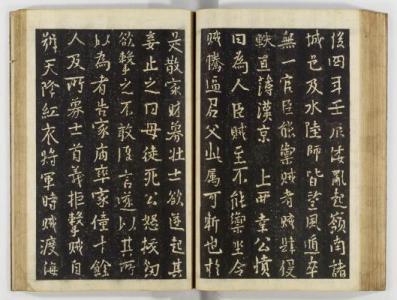 後四年壬辰倭亂起嶺南諸
城邑及水陸師皆望風遁卒
無一官臣能禦賊者賊肆侵
軼直薄漢京 上西幸公憤
曰為人臣賊至不能禦坐令
賊騰逼君父此屬可斬也於
是散家財募壯士欲遂起其
妾止之曰毋徒死公怒拔劍
欲擊之不敢復言遂以其所
以為者告家廟與家僮十餘
人及所募士首義拒擊賊自
號天降紅衣將軍時賊渡海